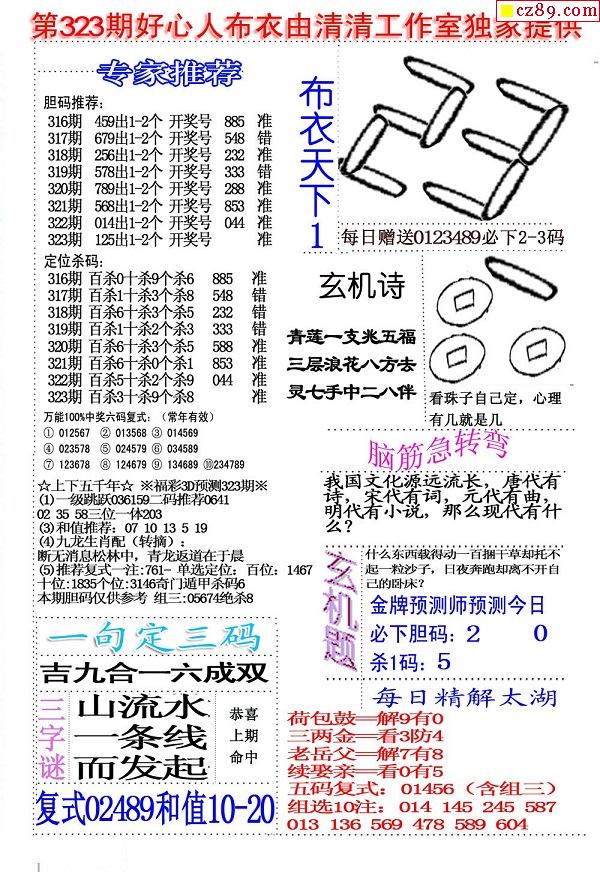 cz89.com
第323期好心人布衣由清清工作室独家提供
专家推荐
胆码推荐:
316期 459出1-2个 开奖号 885 准
317期 679出1-2个 开奖号 548 错
318期 256出1-2个 开奖号 232 准
319期 578出1-2个 开奖号 333 错
320期 789出1-2个 开奖号 288 准
321期 568出1-2个 开奖号 853 准
322期 014出1-2个 开奖号 044 准
323期 125出1-2个 开奖号 准
定位杀码:
316期 百杀0十杀9个杀6 885 准
317期 百杀1十杀3个杀8 548 错
318期 百杀6十杀3个杀5 232 错
319期 百杀1十杀2个杀3 333 错
320期 百杀6十杀3个杀5 588 准
321期 百杀6十杀0个杀1 853 准
322期 百杀5十杀2个杀9 044 准
323期 百杀3十杀9个杀8 准
万能100%中奖六码复式:(常年有效)
① 012567 ② 013568 ③ 014569
④ 023578 ⑤ 024579 ⑥ 034589
⑦ 123678 ⑧ 124679 ⑨ 134689 ⑩234789
☆上下五千年☆ ※福彩3D预测323期※
(1)一级跳跃036159二码推荐0641
02 35 58三位一体203
(3)和值推荐: 07 10 13 5 19
(4)九龙生肖配(转摘):
断无消息松林中,青龙返道在于晨
(5)推荐复式一注:761- 单选定位: 百位: 1467
十位:1835个位:3146奇门遁甲杀码6
本期胆码仅供参考 组三:05674绝杀8
一句定三码
吉九合一六成双
三字谜
山流水
一条线
而发起
恭喜
上期
命中
复式02489和值10-20
布衣天下1
23
每日赠送0123489必下2-3码
玄机诗
青莲一支兆五福
三层浪花八方去
灵七手中二八伴
看珠子自己定,心理
有几就是几
脑筋急转弯
我国文化源远流长,唐代有
诗,宋代有词,元代有曲,
明代有小说,那么现代有什
么?
玄机题
什么东西载得动一百捆干草却托不
起一粒沙子,日夜奔跑却离不开自
己的卧床?
金牌预测师预测今日
必下胆码: 2 0
杀1码: 5
每日精解太湖
荷包鼓═解9有0
三两金═看3防4
老岳父═解7有8
续娶亲═看0有5
五码复式: 01456 (含组三)
组选10注: 014 145 245 587
013 136 569 478 589 604